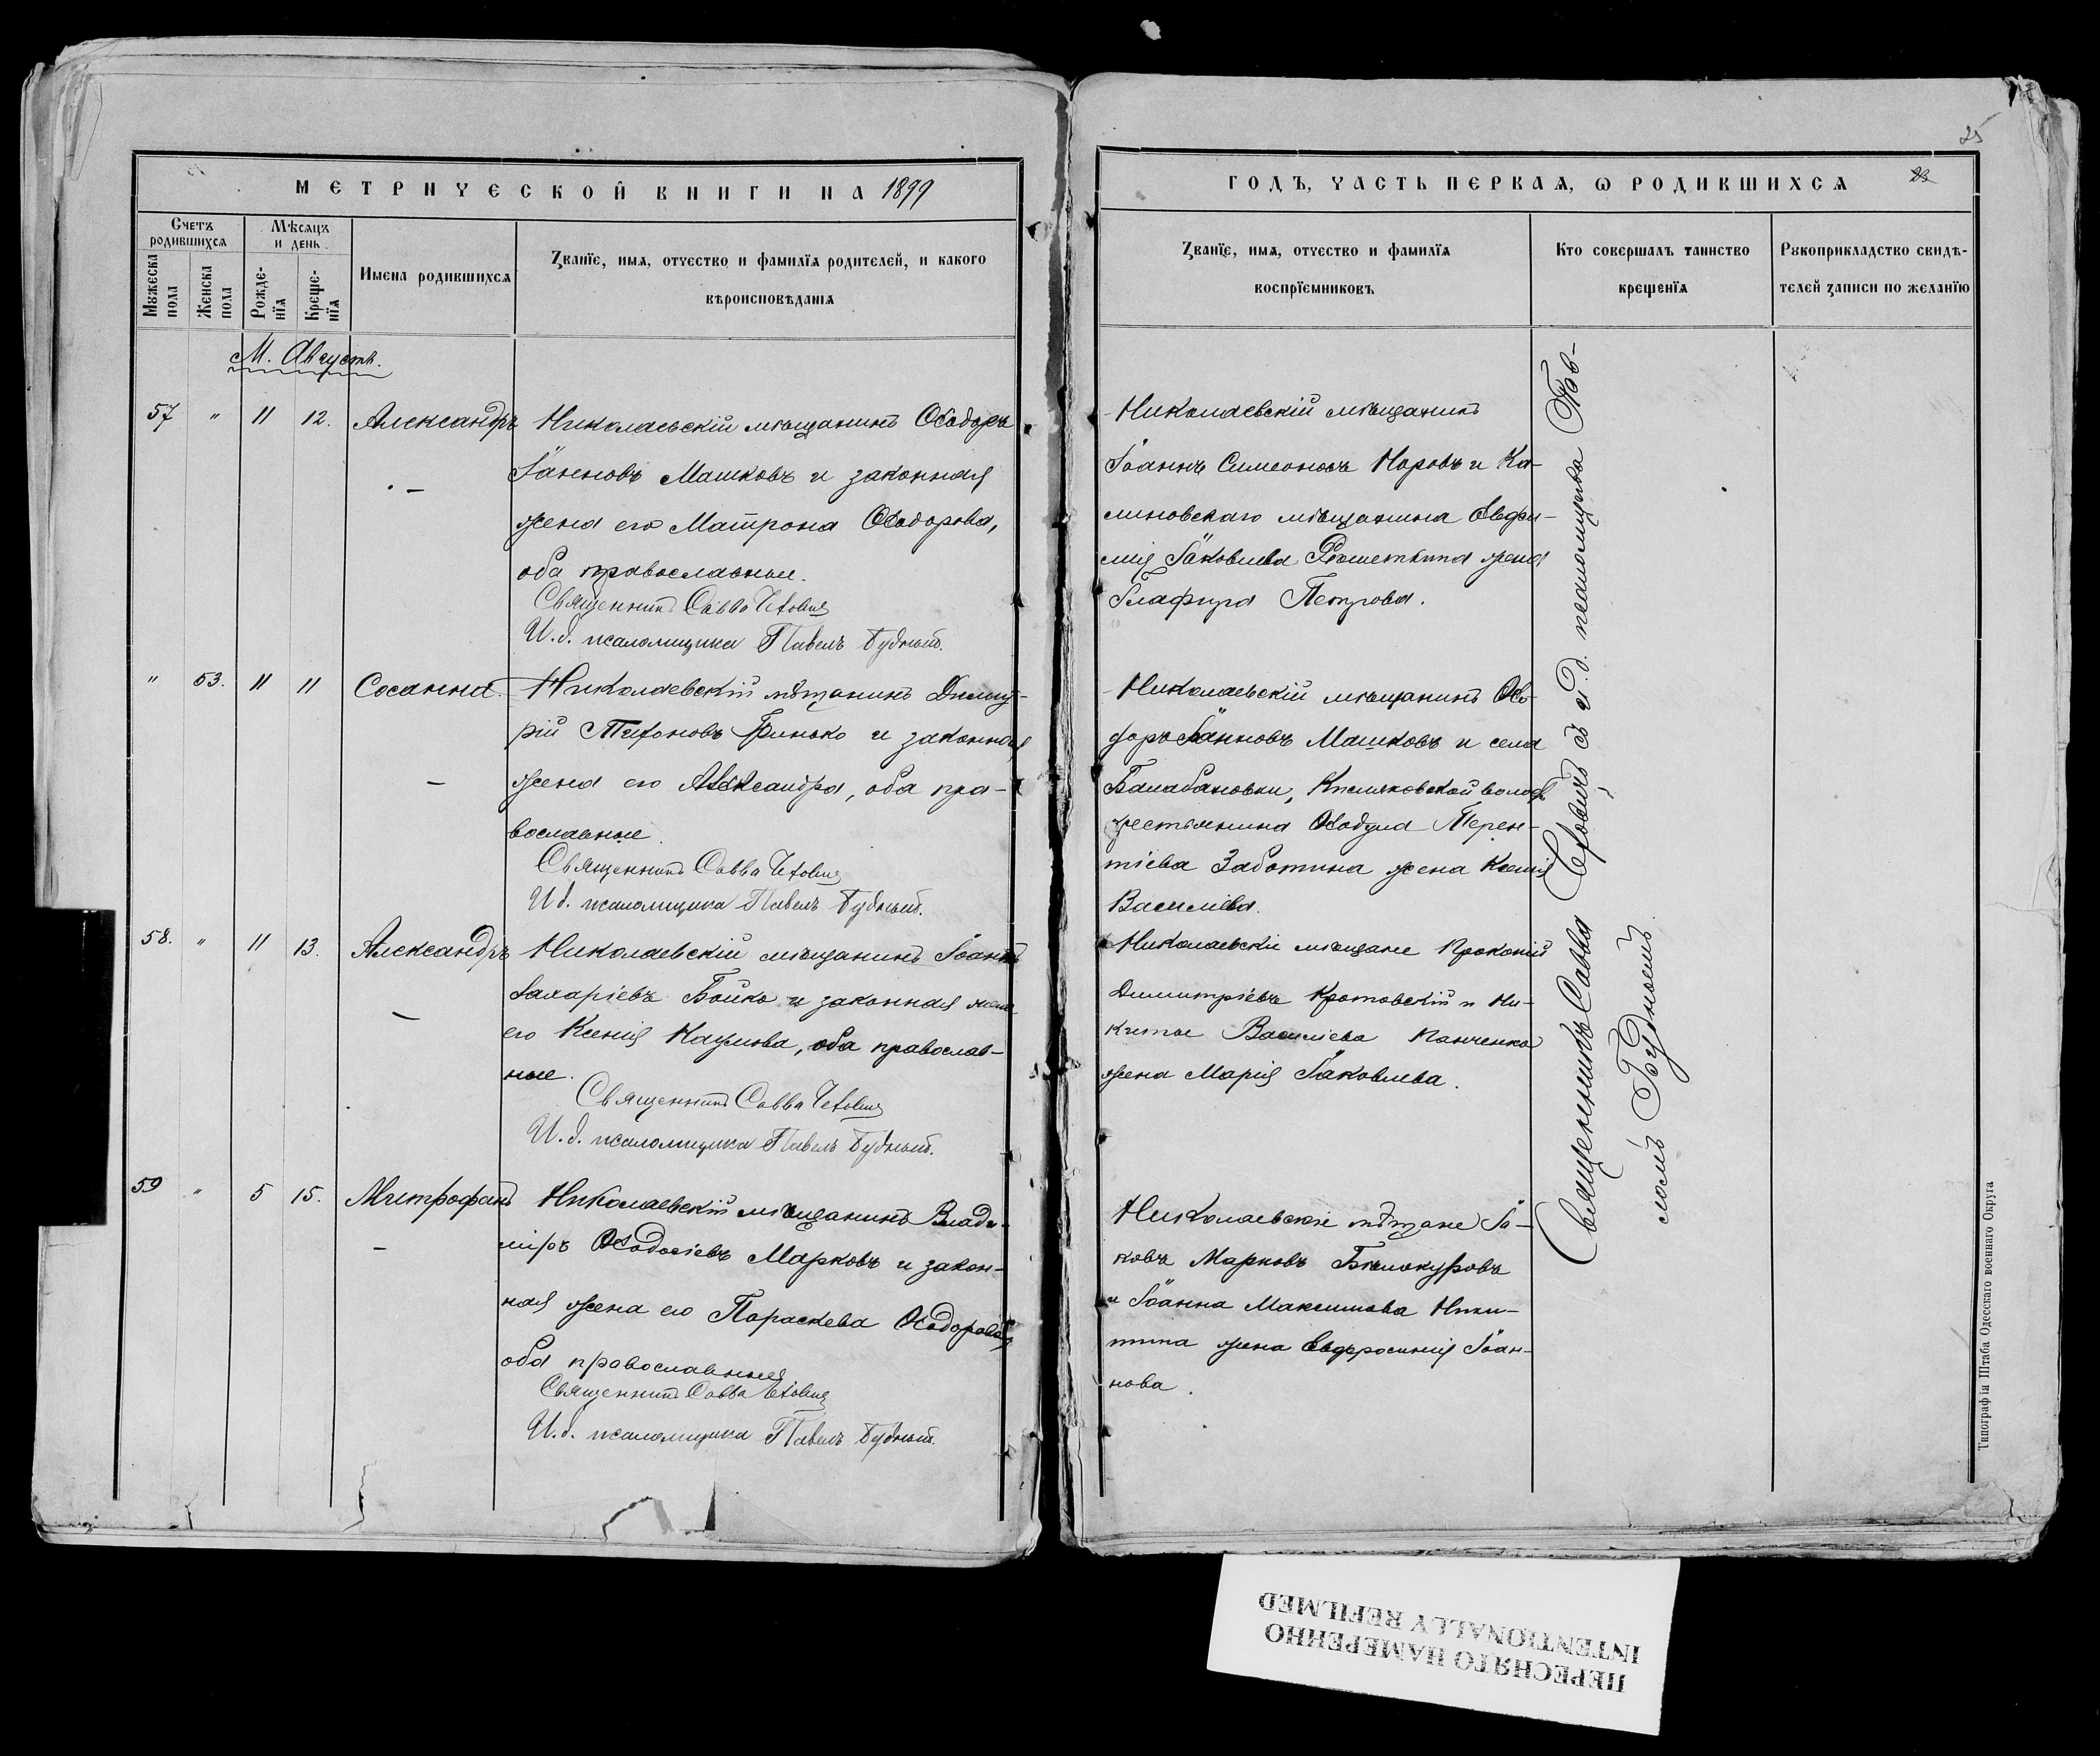 25
МЕТРИЧЕСКОЙ КНИГИ НА 1899
ГОДЪ, ЧАСТЬ ПЕРВАЯ, Ѡ РОДИВШИХСЯ
23
Счетъ родившихся
Мѣсяцъ и день
Мужеска пола
Женска пола
Рожде-нія
Креще-нія
Имена родившихся
Званїе, имя, отчество и фамилїя родителей, и какого
вѣроисповѣданія
Званїе, имя, отчество и фамилїя
воспрїемниковъ
Кто совершалъ таинство
крещенїя
Рукоприкладство свидѣ-
телей записи по желанїю
М. Августъ.
57 " 11 12. Александръ
Николаевскій мѣщанинъ Ѳеодоръ
Іоанновъ Машковъ и законная
жена его Матрона Ѳеодорова,
оба православные.
Священникъ Савва
И. д. псаломщика Павелъ Будный.
Николаевскій мѣщанинъ
Іоаннъ Симеоновъ Норовъ и Ка-
линовскаго мѣщанина Евфи-
мія Іаковлева Рѣшеткина жена
Глафира Петрова.
" 53. 11 11 Сосанна.
Николаевскій мѣщанинъ Димит-
рій Тихоновъ Гринько и законная
жена его Александра, оба пра-
вославные.
Священникъ Савва
И. д. псаломщика Павелъ Будный.
Николаевскій мѣщанинъ Ѳео-
доръ Іоанновъ Машковъ и села
Балабановки, Кисляковской волос.
крестьянина Ѳеодула Терен-
тіева Заботина жена Ксенія
Василіева.
58. " 11 13. Александръ
Николаевскій мѣщанинъ Іоаннъ
Захаріевъ Бойко и законная жена
его Ксенія Наумова, оба православ-
ные.
Священникъ Савва
И. д. псаломщика Павелъ Будный.
Николаевскіе мѣщане Прокопій
Димитріевъ Кротовскій и Ни-
киты Василіева Панченко
жена Марія Іаковлева.
59 " 5 15. Митрофанъ
Николаевскій мѣщанинъ Влади-
міръ Ѳеодосіевъ Марковъ и закон-
ная жена его Параскева Ѳеодорова,
оба православные
Священникъ Савва
И. д. псаломщика Павелъ Будный.
Николаевскіе мѣщане Іа-
ковъ Марковъ Бѣлокуровъ
и Іоанна Максимова Ники-
тина жена Евфросинія Іоан-
нова.
Священникъ Савва съ и. д. псаломщика Пав-
ломъ Буднымъ.
Типографія Штаба Одесскаго военнаго Округа
ПЕРЕСНЯТО НАМЕРЕННО
INTENTIONALLY REFILMED